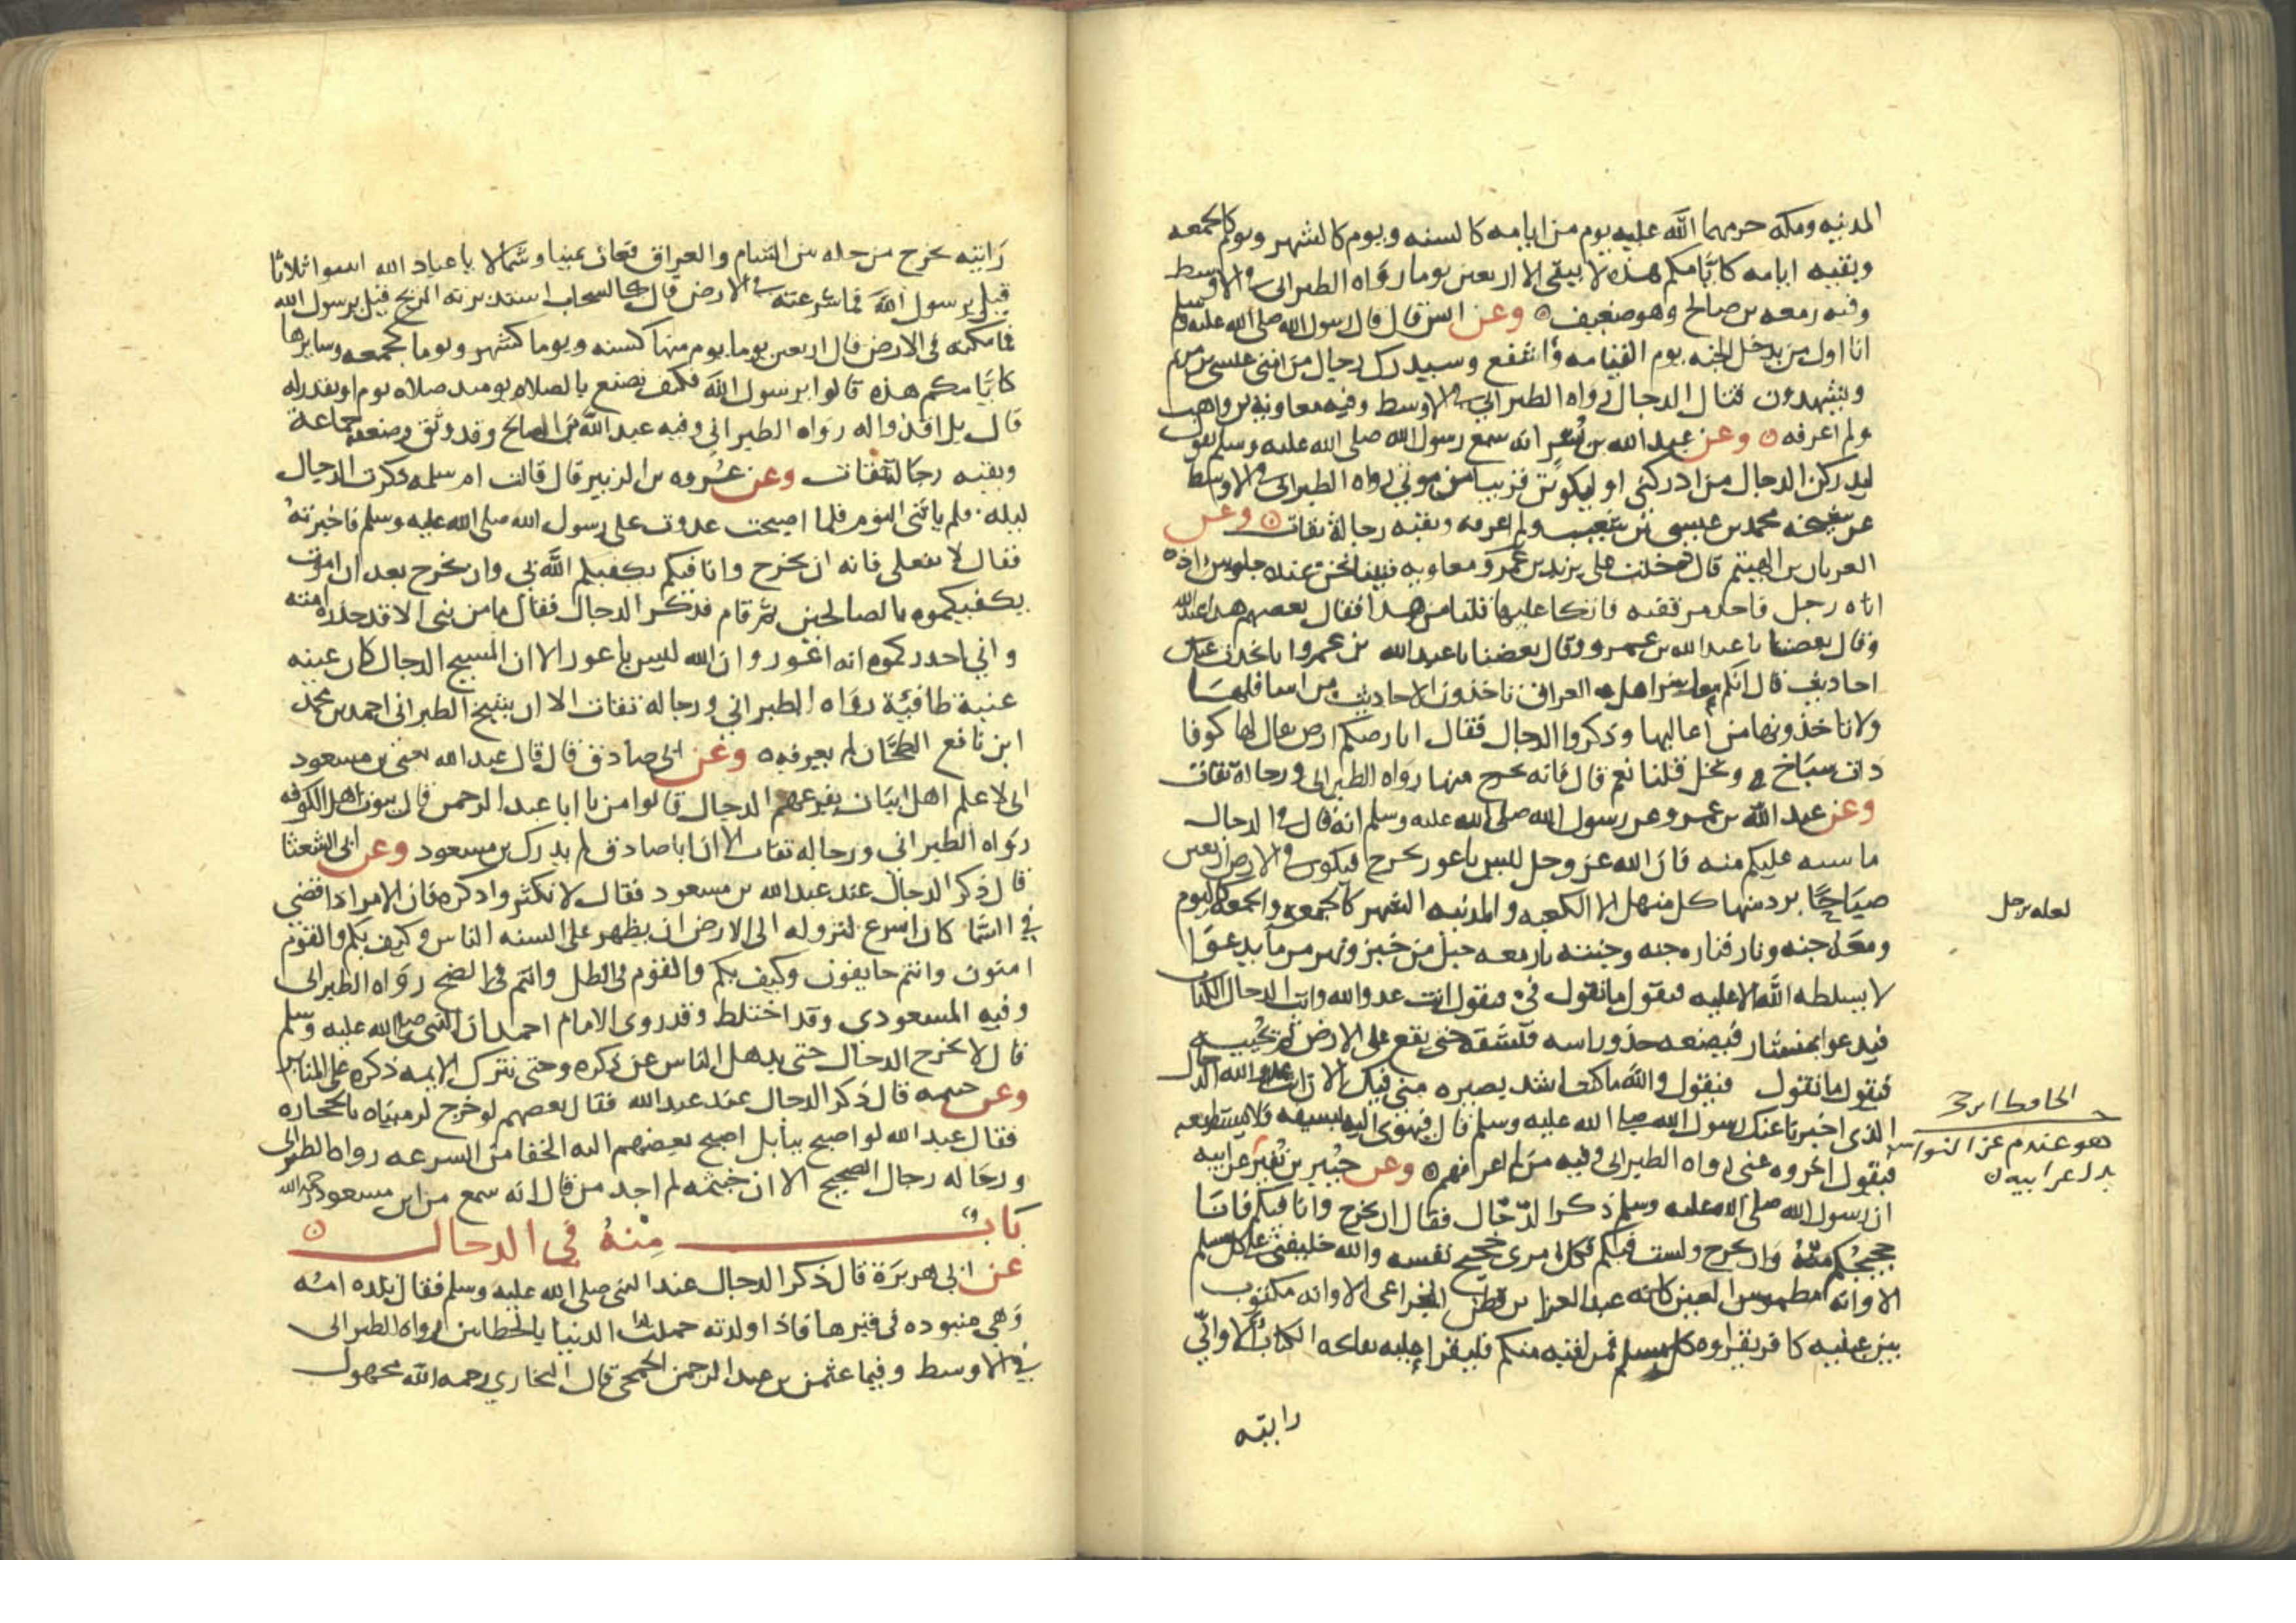 المدنيه ومكه حرمهما الله عليه يوم من ايامه كالسنه ويوم كالشهر ويوم كالجمعه
وبقيه ايامه كايامكم هذه لا يبقى الا اربعين يوما رواه الطبراني في الاوسط
وفيه زمعه بن صالح وهو ضعيف ٥ وعن انس قال قال رسول الله صلى الله عليه وسلم
انا اول من يدخل الجنه يوم القيامه وأشفع وسيدرك رجال من امتي عيسى بن مريم
ويشهدون قتال الدجال رواه الطبراني في الاوسط وفيه معاوية بن واهب
ولم اعرفه ٥ وعن عبد الله بن بسر انه سمع رسول الله صلى الله عليه وسلم يقول
ليدركن الدجال من ادركني او ليكونن قريبا من موتي رواه الطبراني في الاوسط
عن شيخه محمد بن عيسى بن شعيب ولم اعرفه وبقيه رجاله ثقات ٥ وعن
العريان بن الهيثم قال دخلت على يزيد بن عمر ومعاويه فبينا نحن عنده جلوس اذ
اتاه رجل فاخذ مرفقيه فاتكا عليها قلنا من هذا فقال بعضهم هذا عبد الله
وقال بعضنا يا عبد الله بن عمرو وقال بعضنا يا عبد الله بن عمروا ما تحدث عنك
احاديث قال انكم معاشر اهل العراق تاخذون الاحاديث من اسافلها
ولا تاخذونها من أعاليها وذكروا الدجال فقال ابارضكم ارض يقال لها كوفا
ذات سباخ ونخل قلنا نعم قال فانه يخرج منها رواه الطبراني ورجاله ثقات
وعن عبد الله بن عمرو عن رسول الله صلى الله عليه وسلم انه قال في الدجال
ما شبه عليكم منه فان الله عز وجل ليس باعور يخرج فيكون في الارض اربعين
صباحا يرد منها كل منهل الا الكعبه والمدينه الشهر كالجمعه والجمعه كاليوم
ومعه جنه ونار فناره جنه وجنته نار معه جبل من خبز ونهر من ما يدعوا
لا يسلطه الله الا عليه فيقول ما تقول في فيقول انت عدو الله وانت الدجال الكذاب
فيدعوا بمنشار فيضعه حذو راسه فيشقه حتى يقع على الارض ثم يحييه
فيقول ما تقول فيقول والله ما كنت اشد بصيره مني فيك الان انت عدو الله الدجال
الذي اخبرنا عنك رسول الله صلى الله عليه وسلم قال فيهوى اليه بسيفه فلا يستطيعه
فيقول اخروه عني رواه الطبراني وفيه من لم اعرفهم ٥ وعن جبير بن نفير عن ابيه
ان رسول الله صلى الله عليه وسلم ذكر الدجال فقال ان يخرج وانا فيكم فانا
حجيجكم منه وان يخرج ولست فيكم فكل امرئ حجيج نفسه والله خليفتي على كل مسلم
الا وانه مطموس العين كانه عبد العزى بن قطن الخزاعي الا وانه مكتوب
بين عينيه كافر يقراوه كل مسلم فمن لقيه منكم فليقرا عليه بفاتحه الكتاب الا واني
رايته
لعله رجل
الحافظ ابن
هو عند م عن النواس
بدل عن ابيه ٥
رايته يخرج من خله بين الشام والعراق فعاث يمينا وشمالا يا عباد الله اثبتوا ثلاثا
قيل يرسول الله فما سرعته في الارض قال كالسحاب استدبرته الريح قيل يرسول الله
فما مكثه في الارض قال اربعين يوما يوم منها كسنه ويوما كشهر ويوما كجمعه وسايرها
كايامكم هذه قالوا يرسول الله فكيف نصنع بالصلاه يوميد صلاه يوم او نقدر له
قال بل اقدروا له رواه الطبراني وفيه عبد الله بن الصالح وقد وثق وضعفه جماعة
وبقيه رجاله ثقات وعن عروه بن الزبير قال قالت ام سلمه ذكرت الدجال
ليله فلم ياتني النوم فلما اصبحت غدوت على رسول الله صلى الله عليه وسلم فاخبرته
فقال لا تفعلي فانه ان يخرج وانا فيكم يكفيكم الله بي وان يخرج بعد ان اموت
يكفيكموه بالصالحين ثم قام فذكر الدجال فقال ما من نبي الا قد حذره امته
واني احذركموه انه اعور وان الله ليس باعور الا ان المسيح الدجال كان عينه
عنبة طافئة رواه الطبراني ورجاله ثقات الا ان شيخ الطبراني احمد بن محمد
ابن نافع الطحان لم يعرفه ٥ وعن ابي صادق قال قال عبد الله يعني بن مسعود
اني لا علم اهل ابيات يفزعهم الدجال قالوا من يا ابا عبد الرحمن قال بيوت اهل الكوفه
رواه الطبراني ورجاله ثقات الا ان ابا صادق لم يدرك بن مسعود وعن ابي الشعثا
قال ذكر الدجال عند عبد الله بن مسعود فقال لا تكثروا ذكره فان الامر اذا قضي
في السما كان اسرع لنزوله الى الارض ان يظهر على السنه الناس وكيف بكم والقوم
امنون وانتم خايفون وكيف بكم والقوم في الظل وانتم في الضح رواه الطبراني
وفيه المسعودي وقد اختلط وقد روى الامام احمد ان النبي صلى الله عليه وسلم
قال لا يخرج الدجال حتى يذهل الناس عن ذكره وحتى تترك الايمه ذكره على المنابر
وعن خيثمه قال ذكر الدجال عند عبد الله فقال بعضهم لو خرج لرميناه بالحجاره
فقال عبد الله لو اصبح ببابل اصبح بعضهم اليه الحفا من السرعه رواه الطبراني
ورجاله رجال الصحيح الا ان خيثمه لم اجد من قال انه سمع من ابن مسعود رحمه الله
باب منه في الدجال ٥
عن ابي هريرة قال ذكر الدجال عند النبي صلى الله عليه وسلم فقال تلده امه
وهي منبوده في قبرها فاذا ولدته حملت النسا بالخطاين رواه الطبراني
في الاوسط وفيها عثمن بن عبد الرحمن الجمحي قال البخاري رحمه الله مجهول